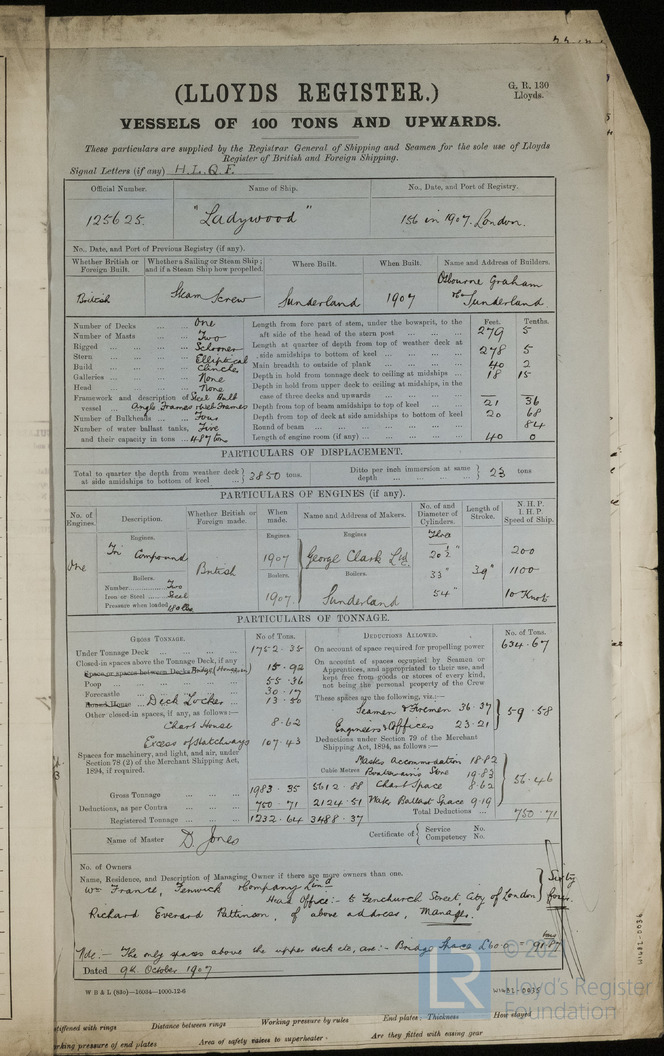 (LLOYDS REGISTER.)
G. R. 130
Lloyds.
VESSELS OF 100 TONS AND UPWARDS.
These particulars are supplied by the Registrar General of Shipping and Seamen for the sole use of Lloyds
Register of British and Foreign Shipping.
Signal Letters (if any) H.L.Q.F.
Official Number. Name of Ship. No., Date, and Port of Registry.
125625. "Ladywood" 156 in 1907. London.
No., Date, and Port of Previous Registry (if any).
Whether British or Foreign Built. Whether a Sailing or Steam Ship; and if a Steam Ship how propelled. Where Built. When Built. Name and Address of Builders.
British Steam Screw Sunderland 1907 Osbourne Graham & Co Sunderland
Feet. Tenths.
Number of Decks ... ... One
Number of Masts ... ... Two
Rigged ... ... Schooner
Stern ... ... Elliptical
Build ... ... Clincher
Galleries ... ... None
Head ... ... None
Framework and description of Steel Bulb
vessel ... Angle Frames & Web Frames
Number of Bulkheads ... Four
Number of water ballast tanks, Five
and their capacity in tons ... 487 tons
Length from fore part of stem, under the bowsprit, to the
aft side of the head of the stern post ... 279 5
Length at quarter of depth from top of weather deck at
side amidships to bottom of keel ... 278 5
Main breadth to outside of plank ... 40 2
Depth in hold from tonnage deck to ceiling at midships ... 18 15
Depth in hold from upper deck to ceiling at midships, in the
case of three decks and upwards ...
Depth from top of beam amidships to top of keel ... 21 36
Depth from top of deck at side amidships to bottom of keel 20 68
Round of beam ... 84
Length of engine room (if any) ... 40 0
PARTICULARS OF DISPLACEMENT.
Total to quarter the depth from weather deck at side amidships to bottom of keel ... 3850 tons.
Ditto per inch immersion at same depth ... 23 tons
PARTICULARS OF ENGINES (if any).
No. of Engines. Description. Whether British or Foreign made. When made. Name and Address of Makers. No. of and Diameter of Cylinders. Length of Stroke. N. H. P. I. H. P. Speed of Ship.
Engines. Engines. Engines Three
One Tri Compound British 1907 George Clark Ltd 20½" 200
Boilers. Boilers. Boilers. 33" 39" 1100
Number Two
Iron or Steel Steel 1907. Sunderland 54" 10 Knots
Pressure when loaded 180 lbs
PARTICULARS OF TONNAGE.
GROSS TONNAGE. No. of Tons. DEDUCTIONS ALLOWED. No. of Tons.
Under Tonnage Deck ... 1752.35
Closed-in spaces above the Tonnage Deck, if any
Space or spaces between Decks Bridge 15.92
Poop ... 55.36
Forecastle ... 30.17
Round House Deck Locker 13.50
Other closed-in spaces, if any, as follows:—
Chart House 8.62
Excess of Hatchways 107.43
Spaces for machinery, and light, and air, under
Section 78 (2) of the Merchant Shipping Act,
1894, if required.
Gross Tonnage ... 1983.35 5612.88
Deductions, as per Contra ... 750.71 2124.51
Registered Tonnage ... 1232.64 3488.37
Cubic Metres
On account of space required for propelling power 634.67
On account of spaces occupied by Seamen or
Apprentices, and appropriated to their use, and
kept free from goods or stores of every kind,
not being the personal property of the Crew
These spaces are the following, viz.:—
Seamen & Firemen 36.37
Engineers & Officers 23.21
59.58
Deductions under Section 79 of the Merchant
Shipping Act, 1894, as follows:—
Masters Accommodation 18.82
Boatswain's Store 19.83
Chart Space 8.62
Water Ballast Space 9.19
56.46
Total Deductions ... 750.71
Name of Master D. Jones
Certificate of Service No.
Competency No.
No. of Owners
Name, Residence, and Description of Managing Owner if there are more owners than one.
Wm France, Fenwick & Company Limd
Head Office:- 5 Fenchurch Street, City of London
Sixty four.
Richard Everard Pattinson, of above address, Manager.
Note:- The only spaces above the upper deck etc, are:- Bridge Space 91.87
Dated 9th October 1907
W B & L (93o)—16034—1000-12-6
W1432-0035
W1432-0036
© 202
LR
Lloyd's Register
Foundation
stiffened with rings Distance between rings Working pressure by rules End plates, Thickness How stayed
working pressure of end plates Area of safety valves to superheater Are they fitted with easing gear